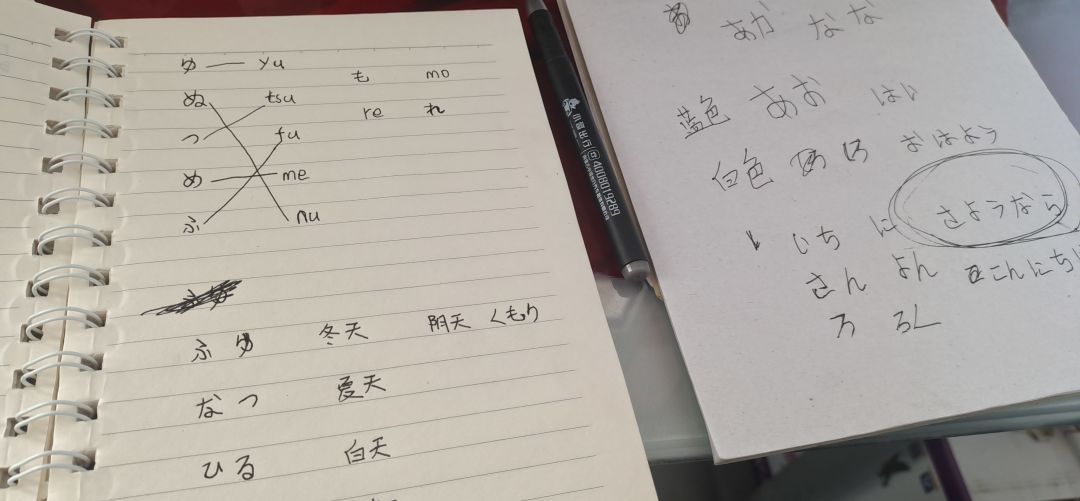 ゆ — yu
も mo
ぬ tsu
re れ
つ fu
め me
ふ nu
ふゆ 冬天 阴天 くもり
なつ 夏天
ひる 白天
小雷出行 4008019289
あ あか なな
蓝色 あお はい
白色 しろ おはよう
いち に さようなら
さん よん こんにち
ろ ろく